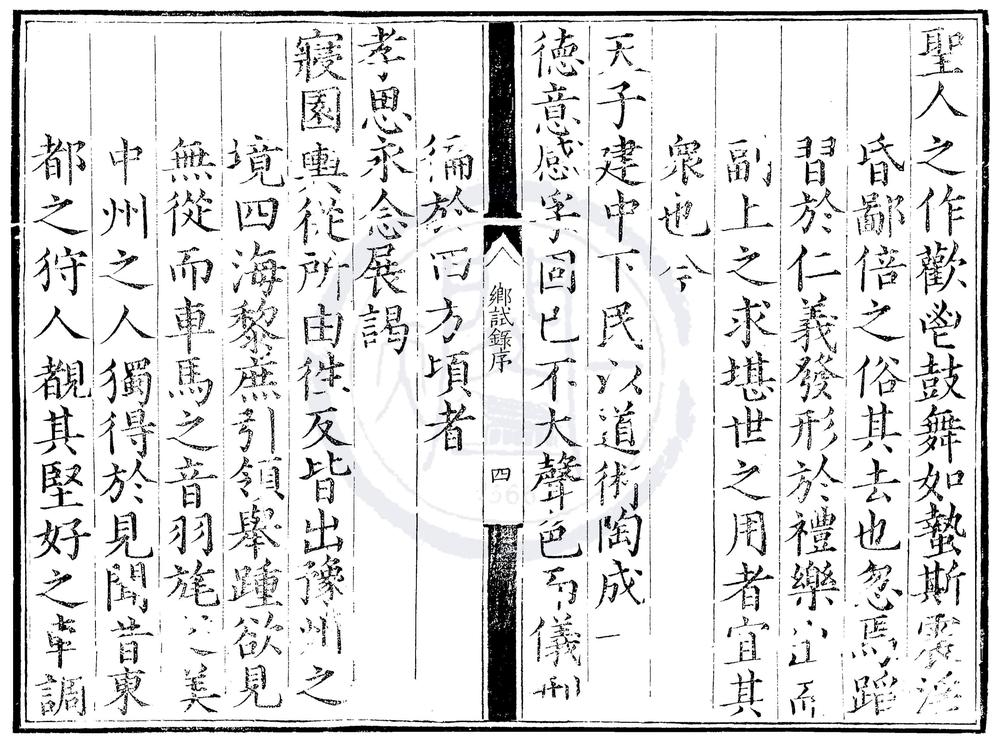 聖人之作歡鬯鼓舞如蟄斯震淫
昏鄙倍之俗其去也忽焉蹈
習於仁義發形於禮樂
副上之求堪世之用者宜其
衆也兮
天子建中下民以道術陶成一
德意感孚固已不大聲色而儀刑
徧於四方頃者
孝思永念展謁
寢園輿從所由往反皆出豫州之
境四海黎庶引領舉踵欲見
無從而車馬之音羽旄之美
中州之人獨得於見聞昔東
都之狩人覩其堅好之車調
鄉試錄序
四